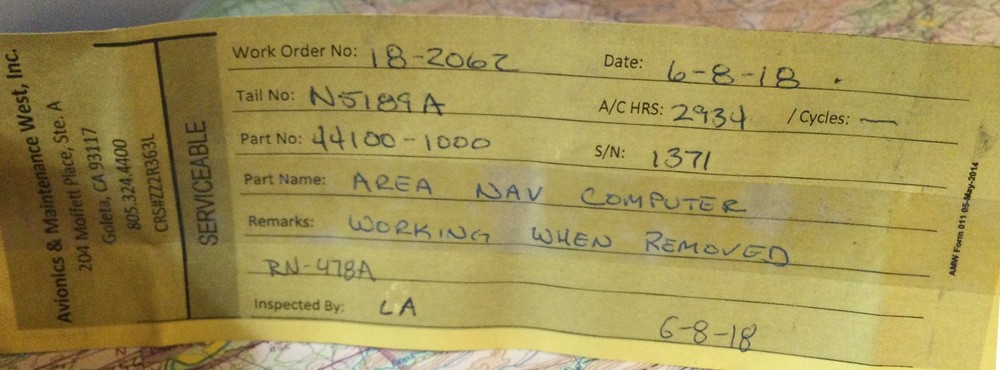 Avionics & Maintenance West, Inc.
204 Moffett Place, Ste. A
Goleta, CA 93117
805.324.4400
CRS#ZZ2R363L
SERVICEABLE
Work Order No: 18-2062 Date: 6-8-18
Tail No: N5189A A/C HRS: 2934 / Cycles: —
Part No: 44100-1000 S/N: 1371
Part Name: AREA NAV COMPUTER
Remarks: WORKING WHEN REMOVED
RN-478A
Inspected By: LA 6-8-18
AMW Form 011 05-May-2014